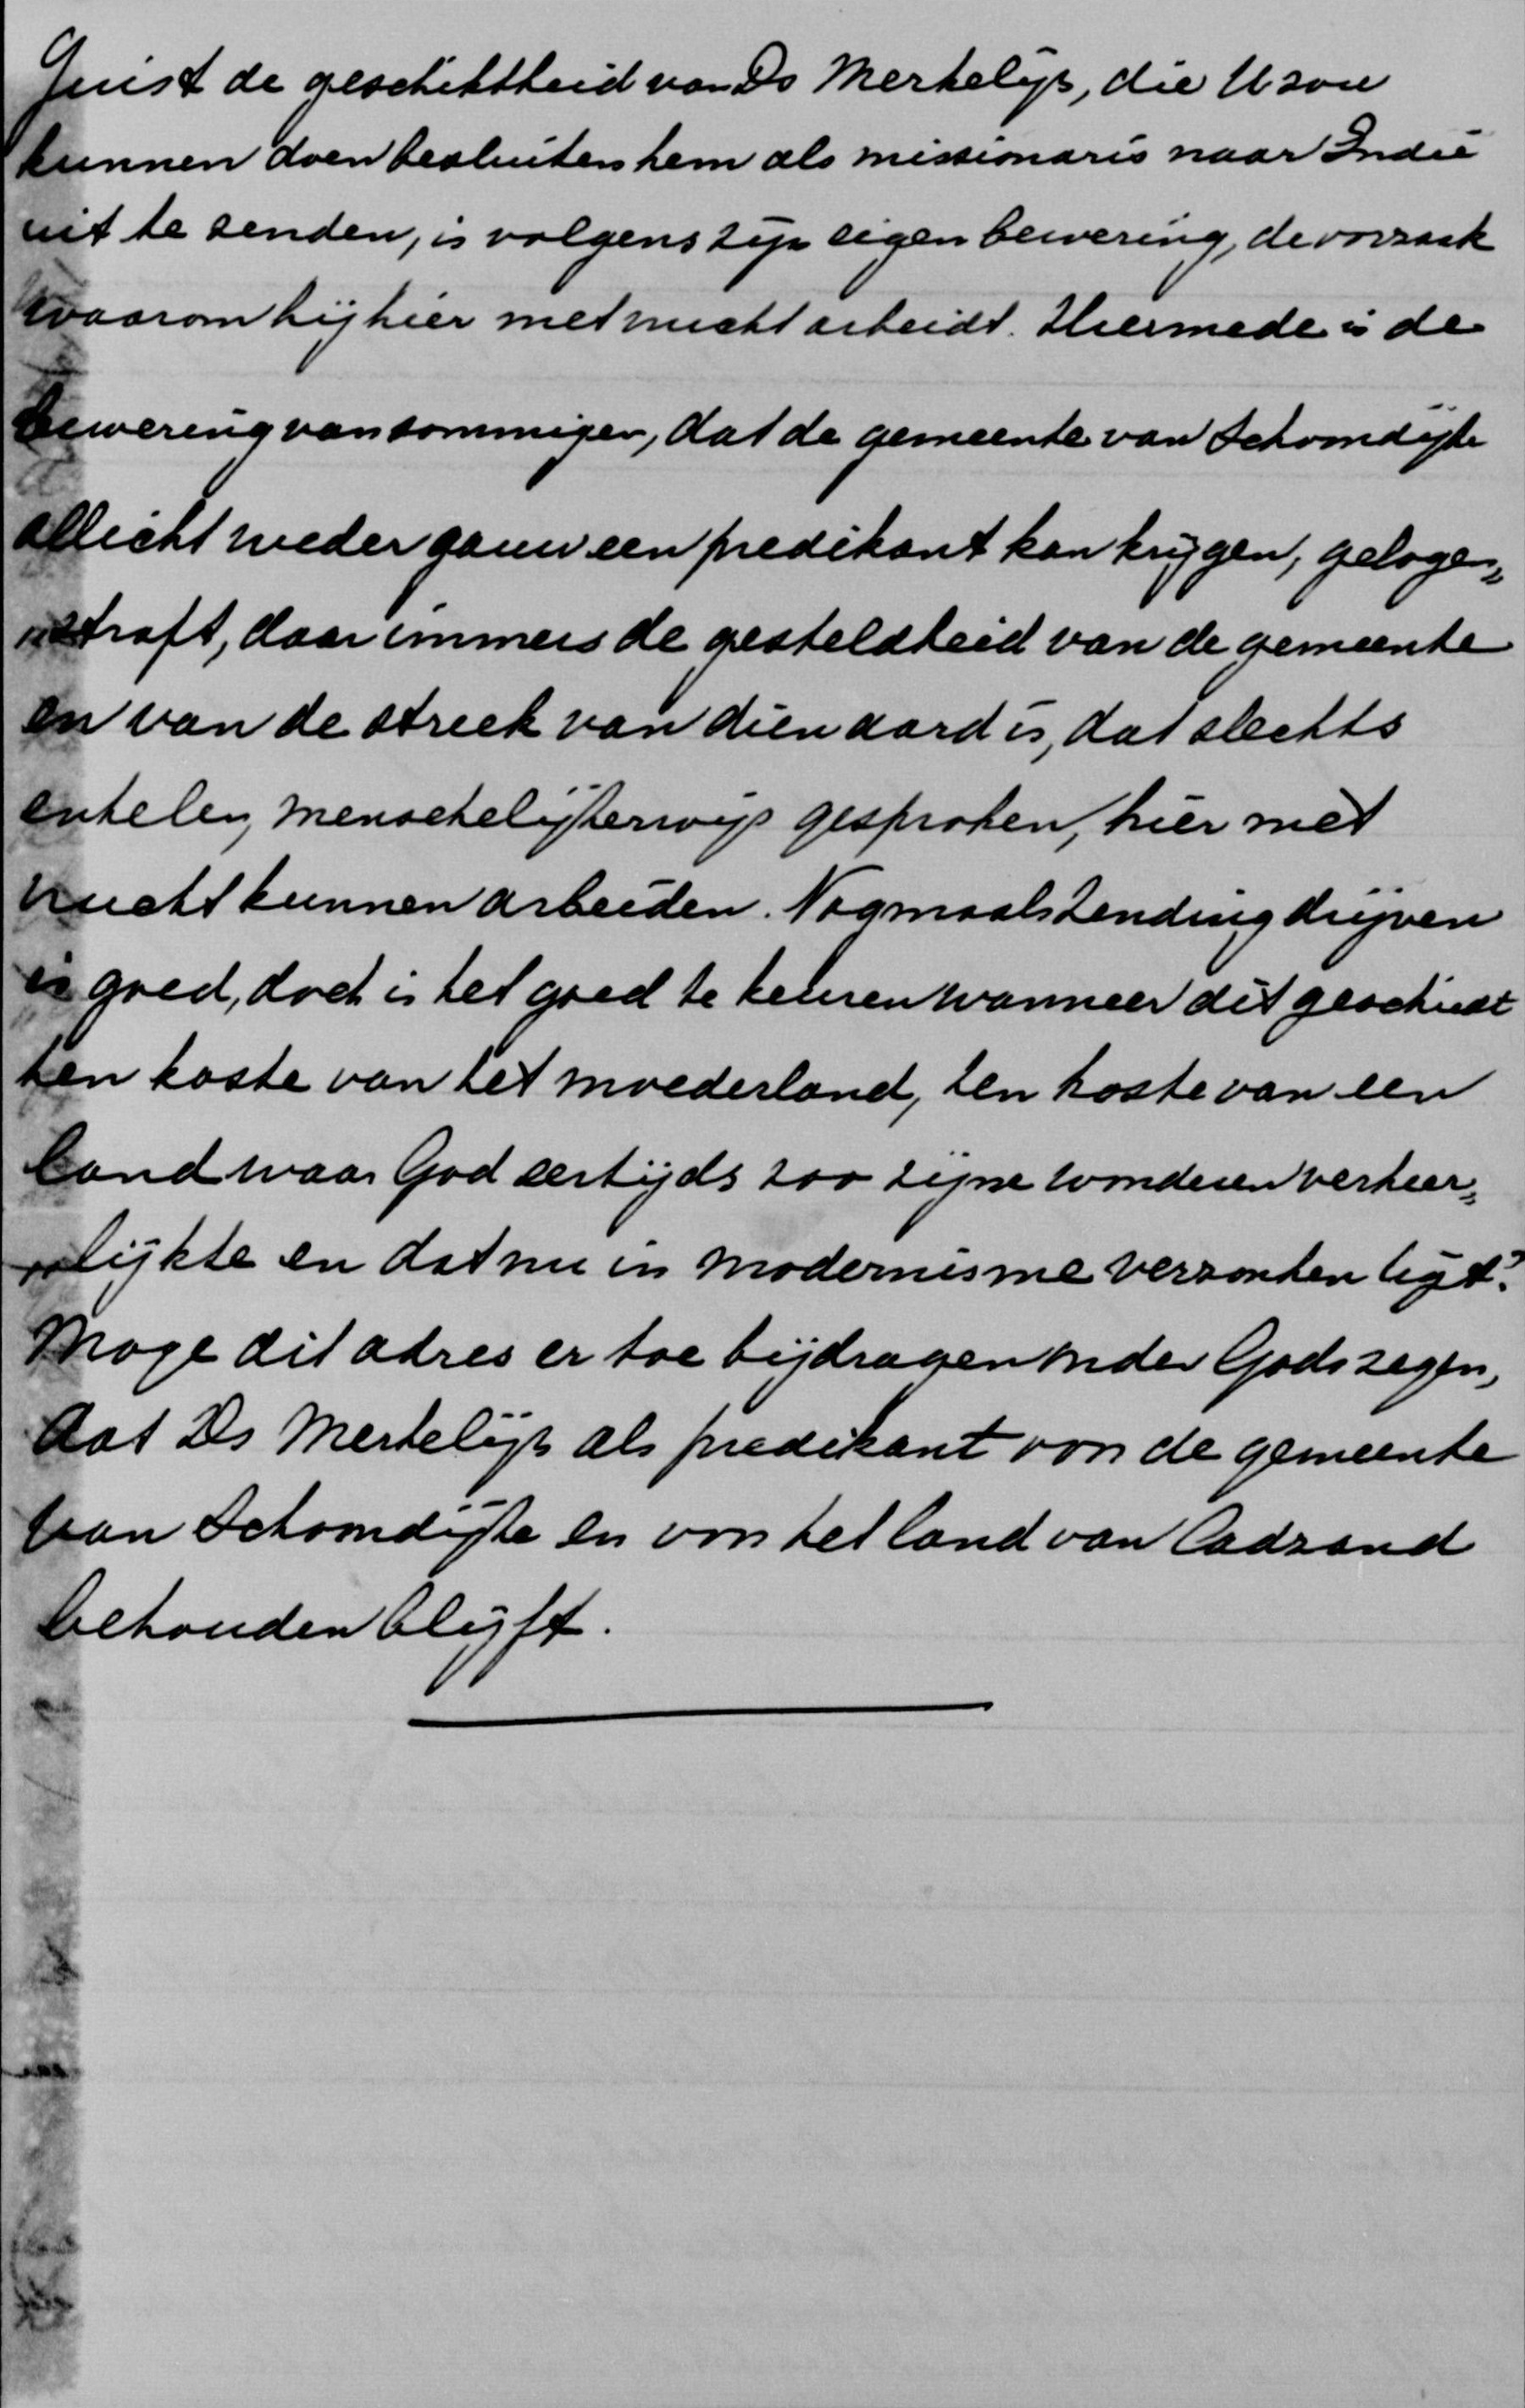 Juist de geschiktheid van Ds Merkelijn, die U zou
kunnen doen besluiten hem als missionaris naar Indië
uit te zenden, is volgens zijn eigen bewering, de oorzaak
waarom hij hier met vrucht arbeidt. Hiermede is de
bewering van sommigen, dat de gemeente van Schoondijke
allicht weder gauw een predikant kan krijgen, gelogen„
„straft, daar immers de gesteldheid van de gemeente
en van de streek van dien aard is, dat slechts
enkelen, menschelijkerwijs gesproken, hier met
vrucht kunnen arbeiden. Nogmaals zending drijven
is goed, doch is het goed te keuren wanneer dit geschiedt
ten koste van het moederland, ten koste van een
land waar God eertijds zoo zijne wonderen verheer„
„lijkte en dat nu in modernisme verzonken ligt?
Moge dit adres er toe bijdragen onder Gods zegen,
dat Ds Merkelijn als predikant voor de gemeente
van Schoondijke en voor het land van Cadzand
behouden blijft.